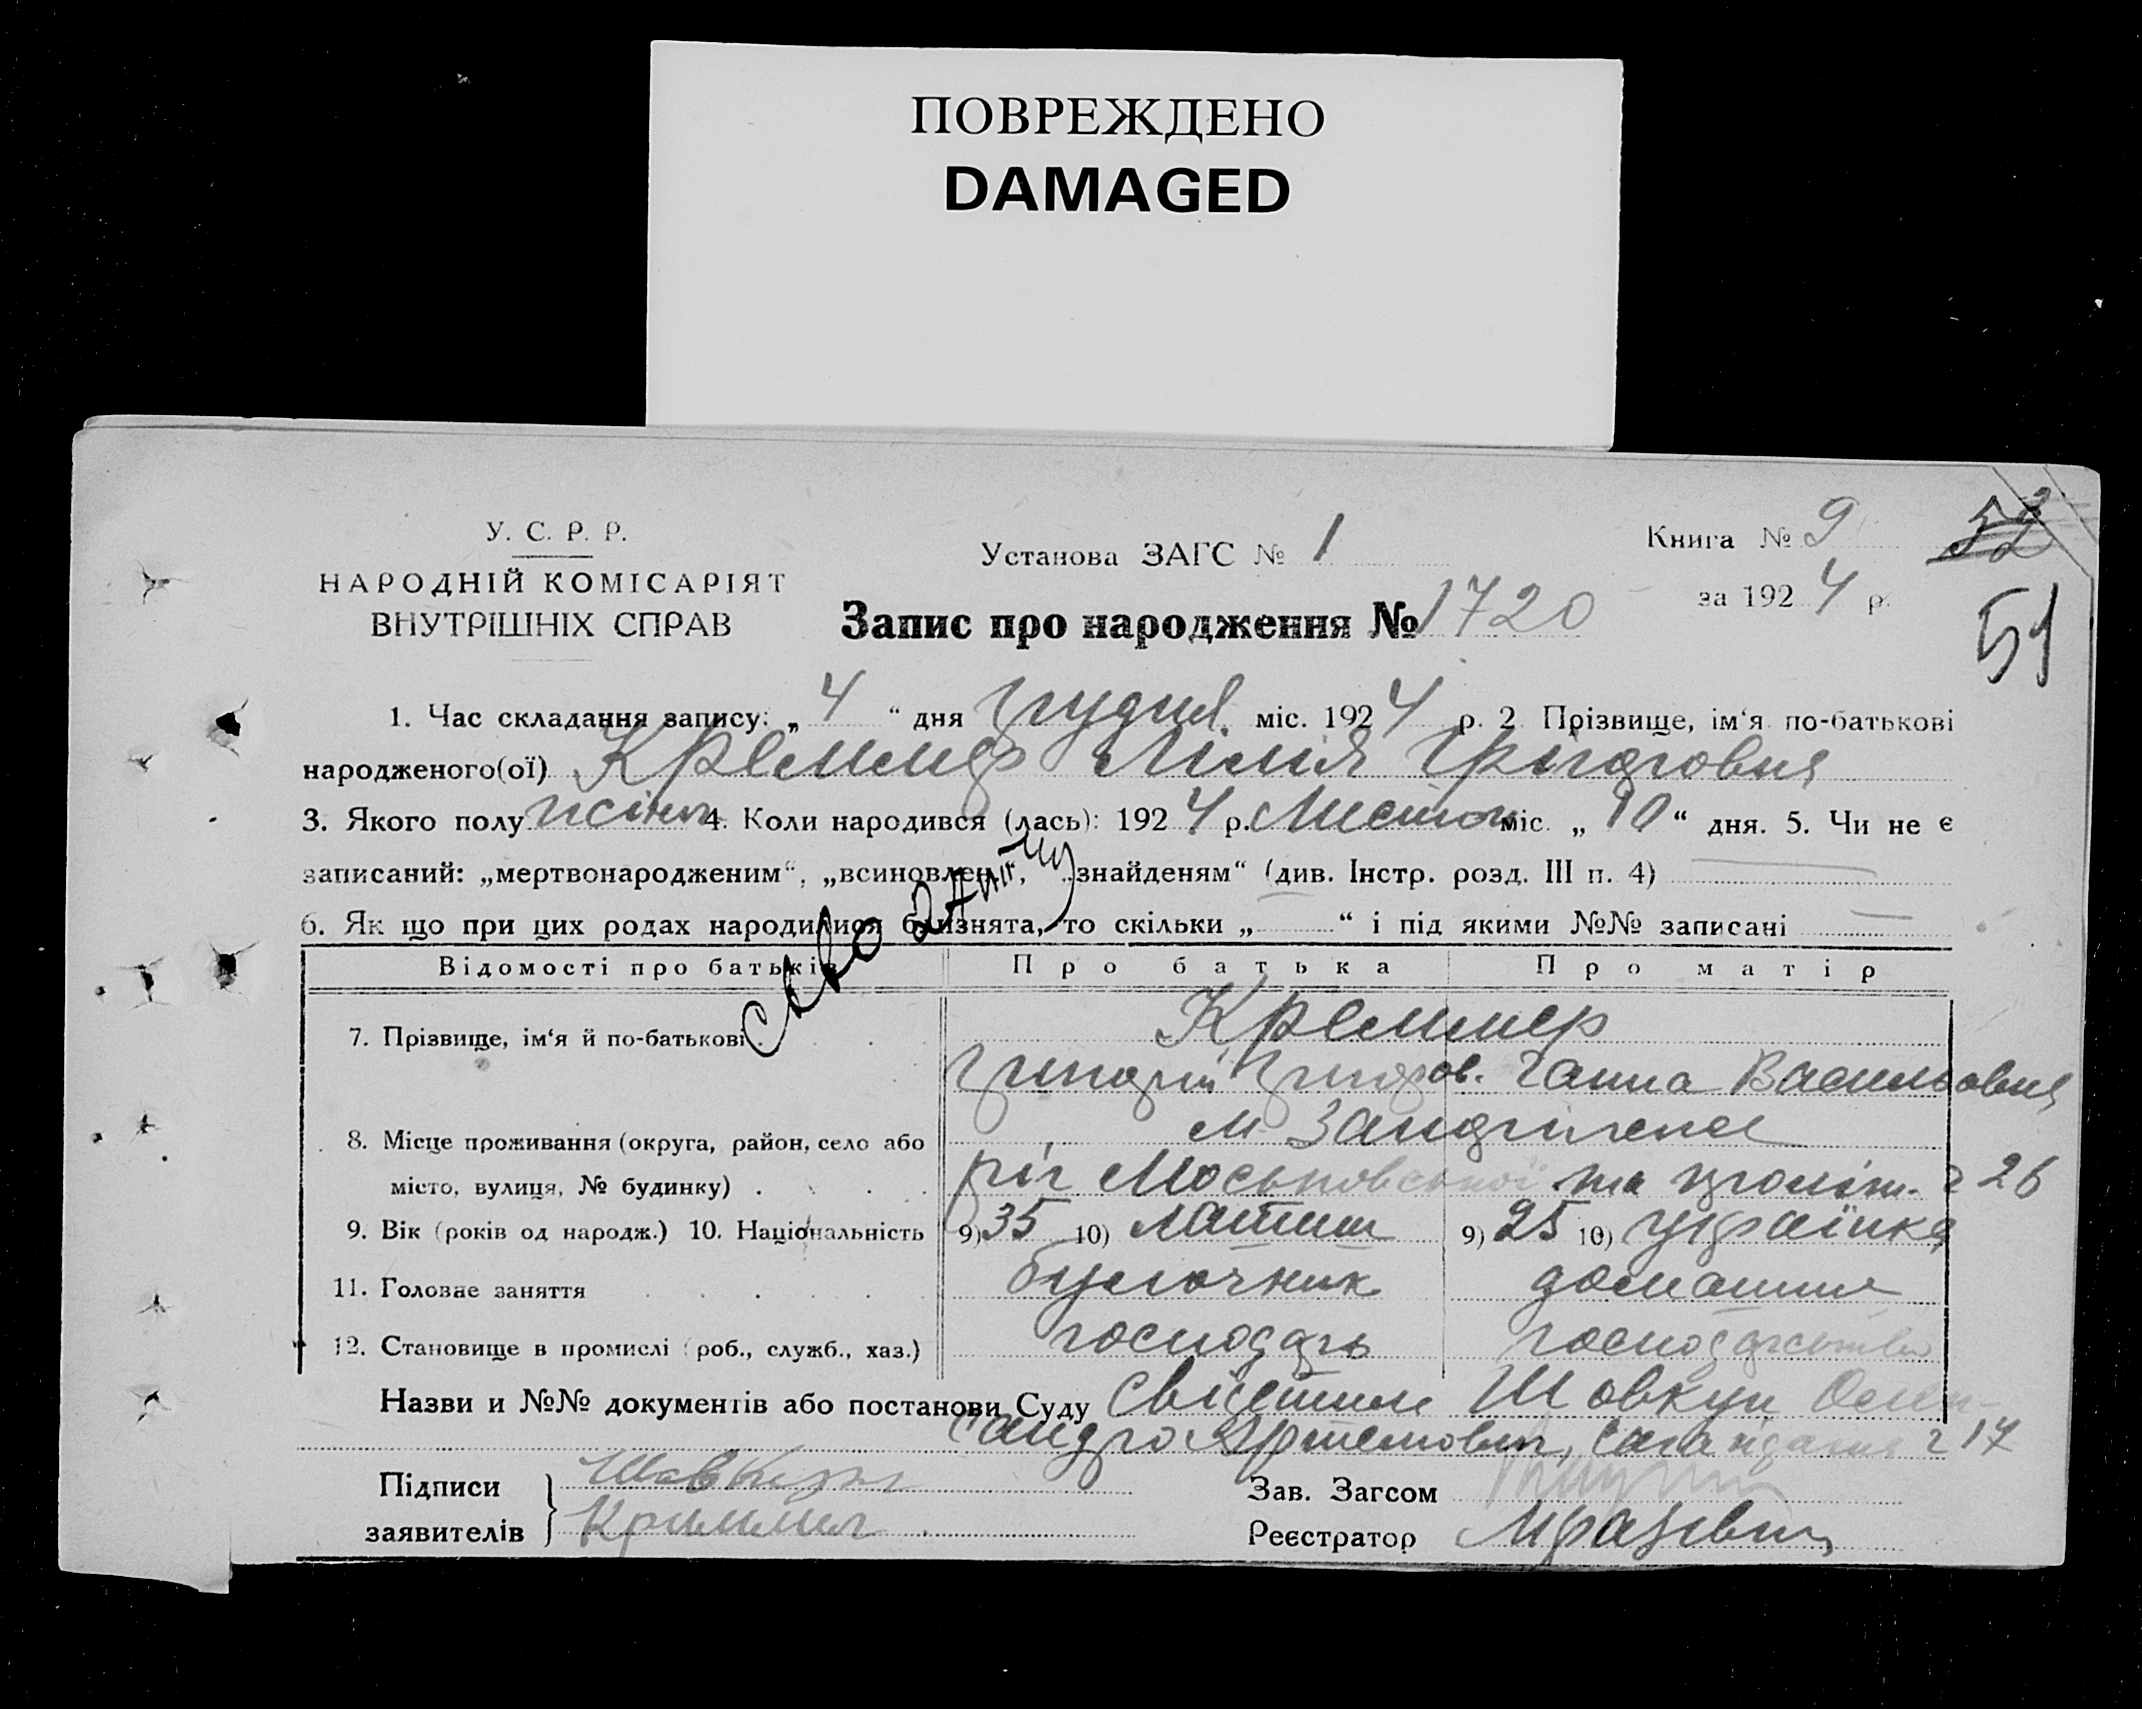 ПОВРЕЖДЕНО
DAMAGED
У. С. Р. Р.
НАРОДНІЙ КОМІСАРІЯТ
ВНУТРІШНІХ СПРАВ
Установа ЗАГС № 1
Книга № 9
52
за 1924 р.
51
Запис про народження № 1720
1. Час складання запису: „4“ дня грудня міс. 1924 р. 2 Прізвище, ім‘я по-батькові
народженого(ої) Креммер Лілія Грігоровна
3. Якого полу жіноч. 4. Коли народився (лась): 1924 р. Листоп міс. „10“ дня. 5. Чи не є
записаний: „мертвонародженим“, „всиновлен“, „знайденям“ (див. Інстр. розд. III п. 4)
6. Як що при цих родах народилися близнята, то скільки „ “ і під якими №№ записані
Відомості про батьків Про батька Про матір
7. Прізвище, ім‘я й по-батькові Креммер
Григорій Григоров. Ганна Васильовна
8. Місце проживання (округа, район, село або
місто, вулиця, № будинку) ріг Московської та 26
9. Вік (років од народж.) 10. Національність 9) 35 10) латиш 9) 25 10) українка
11. Головне заняття булочник домашнє
12. Становище в промислі (роб., служб., хаз.) господарь господарство
Назви и №№ документів або постанови Суду Шовкун Олек-
сандро Артемович, 17
Підписи
заявителів
Зав. Загсом
Реєстратор